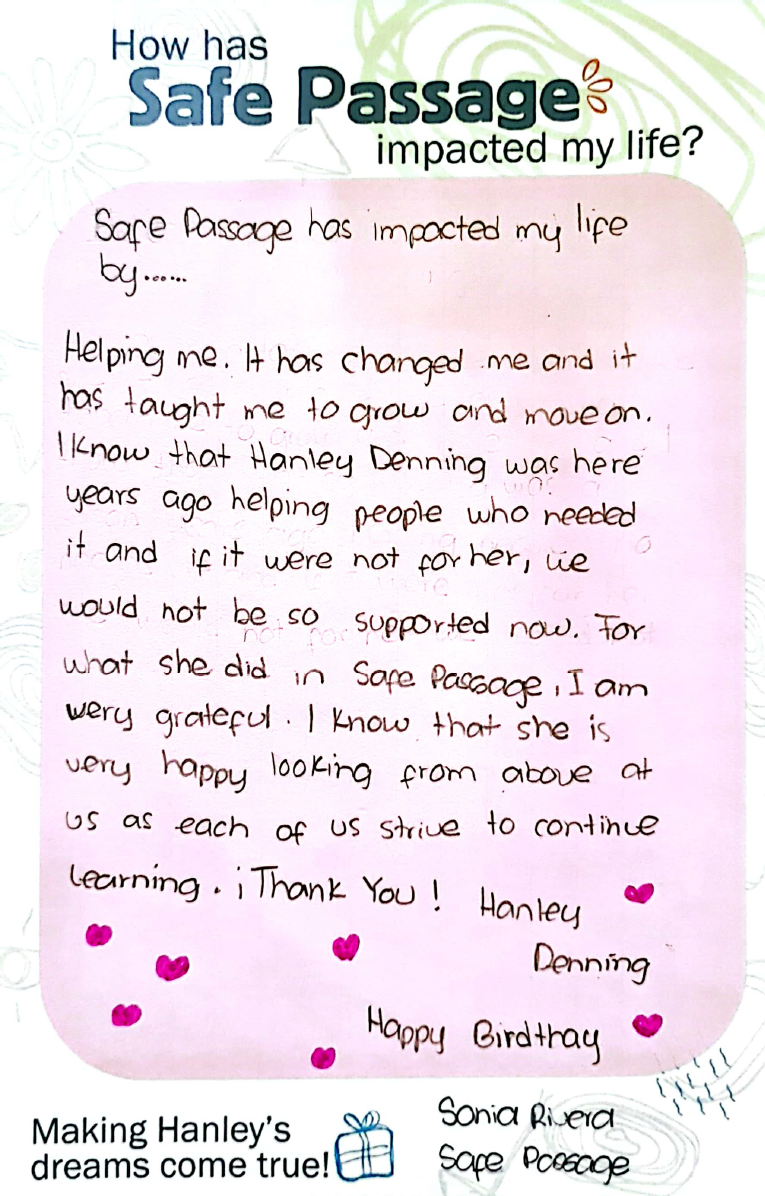 How has
Safe Passage
impacted my life?
Safe Passage has impacted my life
by......
Helping me. It has changed me and it
has taught me to grow and move on.
I Know that Hanley Denning was here
years ago helping people who needed
it and if it were not for her, we
would not be so supported now. For
what she did in Safe Passage, I am
wery grateful. I Know that she is
very happy looking from above at
us as each of us strive to continue
Learning. ¡Thank You! Hanley
Denning
Happy Birdthay
Making Hanley's
dreams come true!
Sonia Rivera
Safe Passage